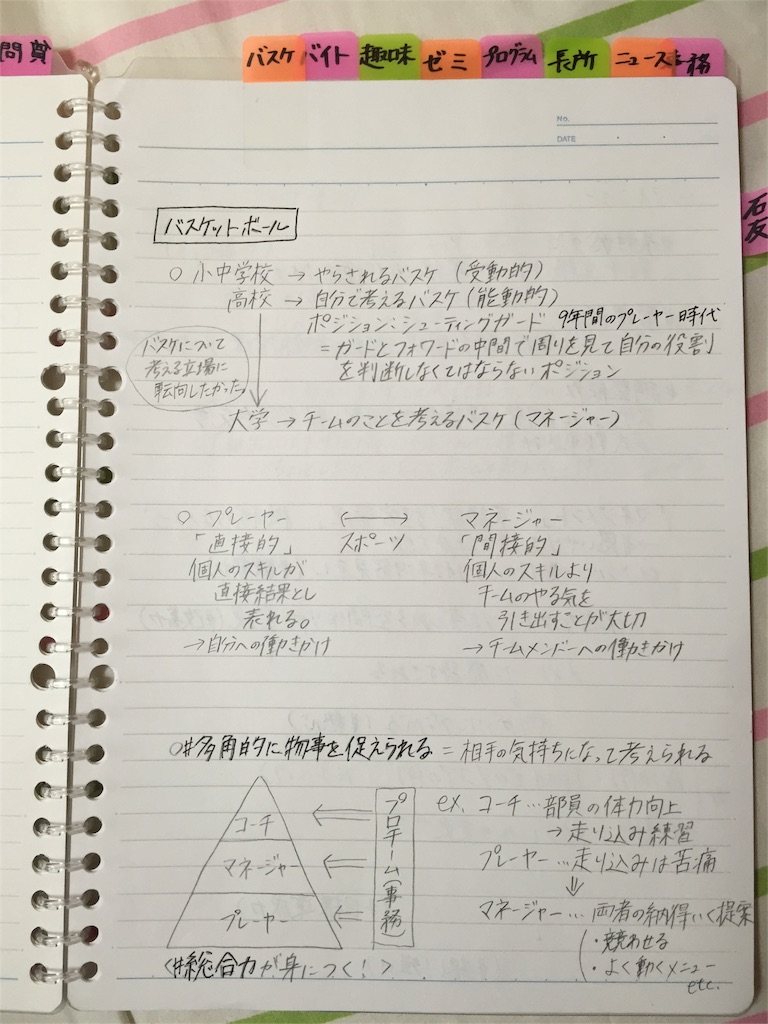 問質
バスケ
バイト
趣味
ゼミ
プログラム
長所
ニュース
務
石友
No.
DATE
バスケットボール
○ 小中学校 → やらされるバスケ (受動的)
高校 → 自分で考えるバスケ (能動的)
ポジション:シューティングガード 9年間のプレーヤー時代
= ガードとフォワードの中間で周りを見て自分の役割
を判断しなくてはならないポジション
バスケについて
考える立場に
転向したかった。
大学 → チームのことを考えるバスケ (マネージャー)
○ プレーヤー ←→ マネージャー
「直接的」 スポーツ 「間接的」
個人のスキルが 個人のスキルより
直接結果とし チームのやる気を
表れる。 引き出すことが大切
→自分への働きかけ →チームメンバーへの働きかけ
○#多角的に物事を捉えられる = 相手の気持ちになって考えられる
コーチ
マネージャー
プレーヤー
プロチーム(事務)
<#総合力が身につく!>
ex. コーチ…部員の体力向上
→ 走り込み練習
プレーヤー…走り込みは苦痛
⇓
マネージャー…両者の納得いく提案
・競わせる
・よく動くメニュー
etc.